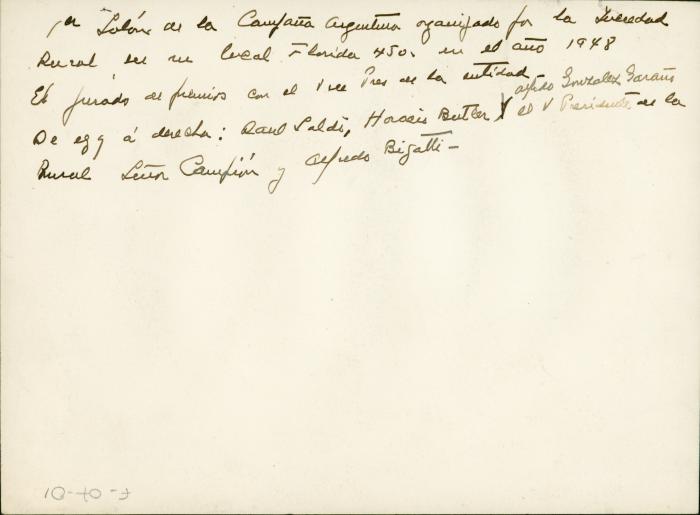 1er Salón de la Campaña Argentina organizado por la Sociedad
Rural en su local Florida 450. en el año 1948
El jurado de premios con el Vice Pres de la entidad
Alfredo Gonzalez Garaño
De izq á derecha: Raul Soldi, Horacio Butler, y el V Presidente de la
Rural Señor Campión y Alfredo Bigatti -